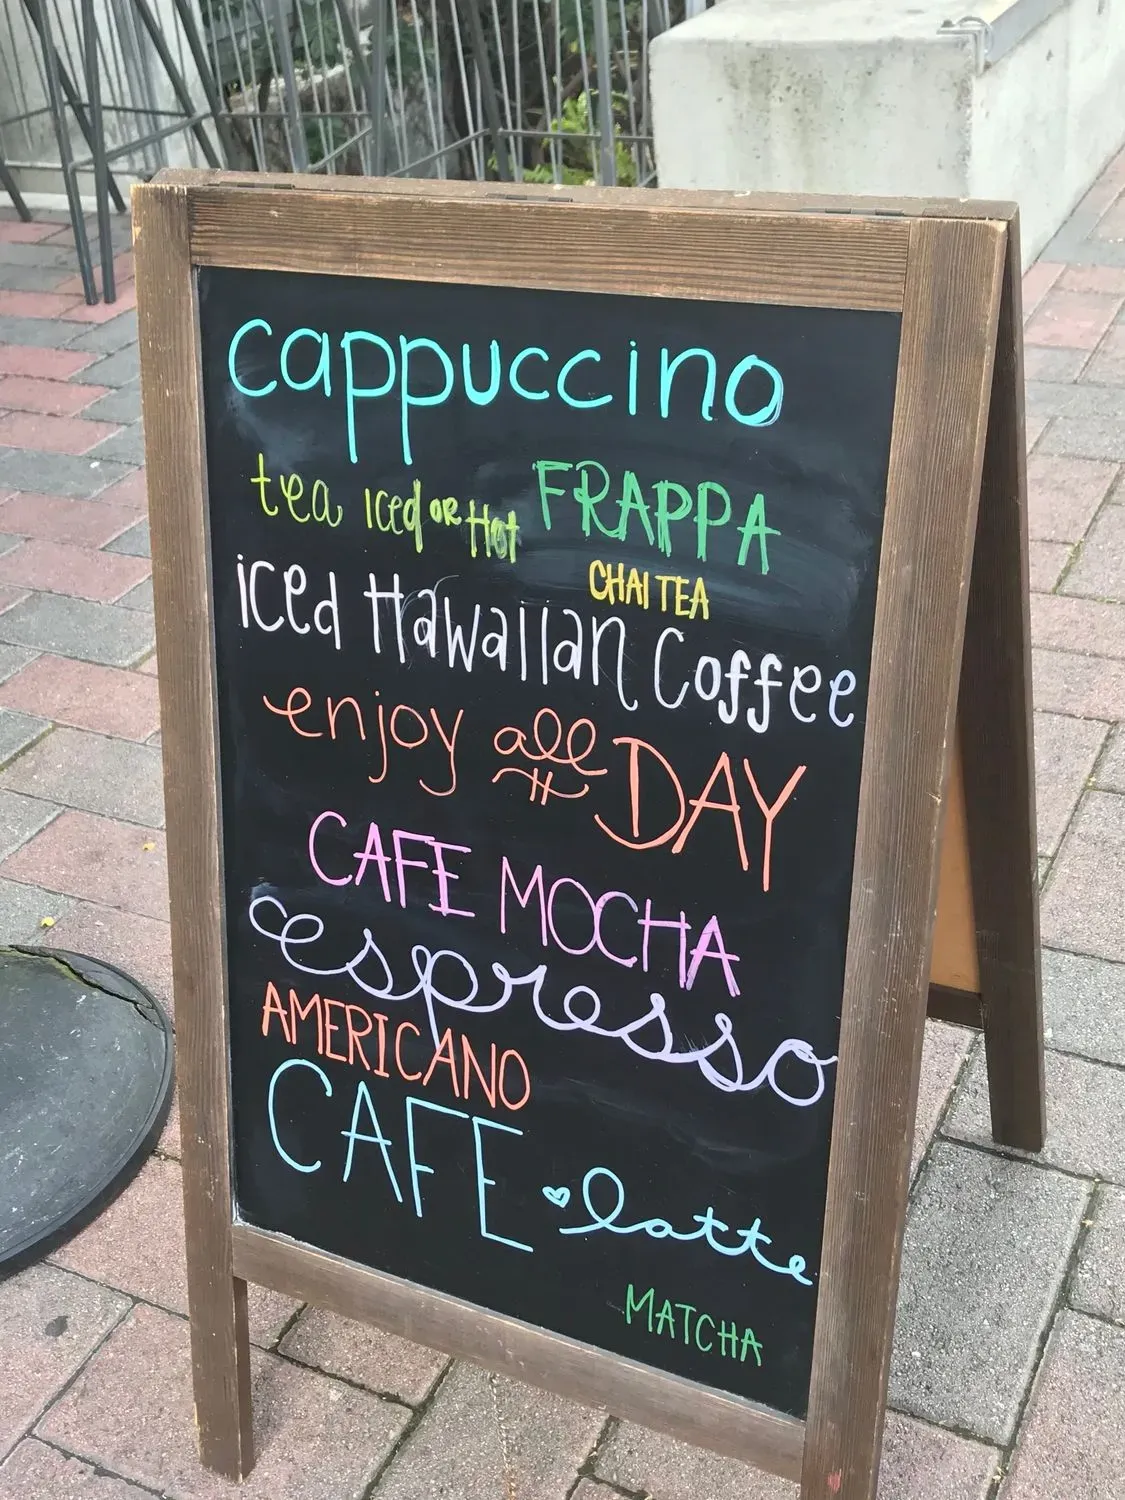 cappuccino
tea iced or Hot FRAPPA
CHAI TEA
iced Hawaiian Coffee
enjoy all DAY
CAFE MOCHA
espresso
AMERICANO
CAFE latte
MATCHA